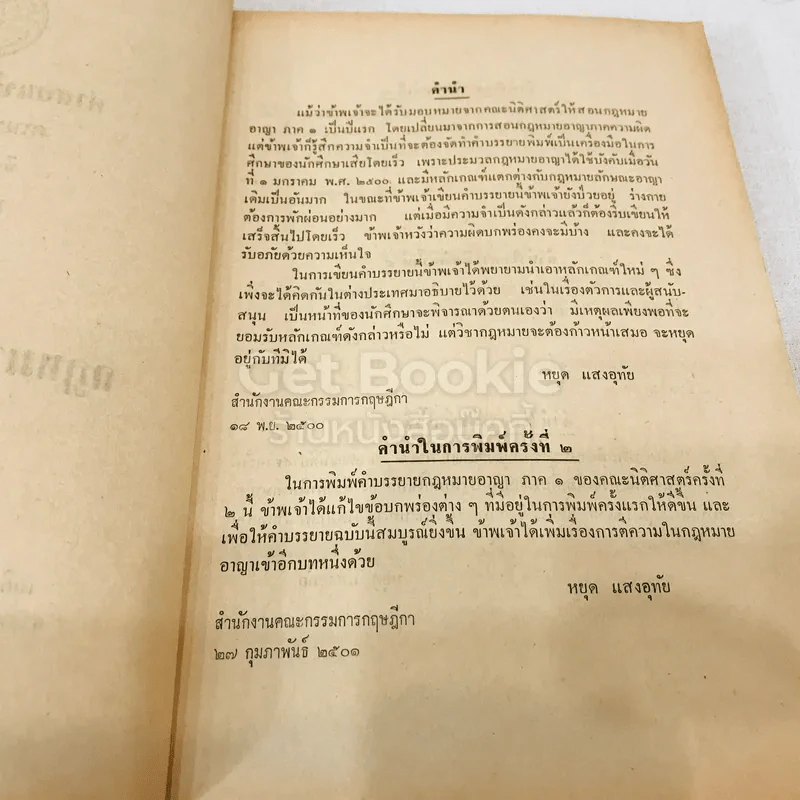 คำนำ
แม้ว่าข้าพเจ้าจะได้รับมอบหมายจากคณะนิติศาสตร์ให้สอนกฎหมาย
อาญา ภาค ๑ เป็นปีแรก โดยเปลี่ยนมาจากการสอนกฎหมายอาญาภาคความผิด
แต่ข้าพเจ้าก็รู้สึกความจำเป็นที่จะต้องจัดทำคำบรรยายพิมพ์เป็นเครื่องมือในการ
ศึกษาของนักศึกษาเสียโดยเร็ว เพราะประมวลกฎหมายอาญาได้ใช้บังคับเมื่อวัน
ที่ ๑ มกราคม พ.ศ. ๒๕๐๐ และมีหลักเกณฑ์แตกต่างกับกฎหมายลักษณะอาญา
เดิมเป็นอันมาก ในขณะที่ข้าพเจ้าเขียนคำบรรยายนี้ข้าพเจ้ายังป่วยอยู่ ร่างกาย
ต้องการพักผ่อนอย่างมาก แต่เมื่อมีความจำเป็นดังกล่าวแล้วก็ต้องรีบเขียนให้
เสร็จสิ้นไปโดยเร็ว ข้าพเจ้าหวังว่าความผิดบกพร่องคงจะมีบ้าง และคงจะได้
รับอภัยด้วยความเห็นใจ
ในการเขียนคำบรรยายนี้ข้าพเจ้าได้พยายามนำเอาหลักเกณฑ์ใหม่ ๆ ซึ่ง
เพิ่งจะได้คิดกันในต่างประเทศมาอธิบายไว้ด้วย เช่นในเรื่องตัวการและผู้สนับ-
สนุน เป็นหน้าที่ของนักศึกษาจะพิจารณาด้วยตนเองว่า มีเหตุผลเพียงพอที่จะ
ยอมรับหลักเกณฑ์ดังกล่าวหรือไม่ แต่วิชากฎหมายจะต้องก้าวหน้าเสมอ จะหยุด
อยู่กับที่มิได้
หยุด แสงอุทัย
Get Bookie
ร้านหนังสือบุ๊คกี้
สำนักงานคณะกรรมการกฤษฎีกา
๑๘ พ.ย. ๒๕๐๐
คำนำในการพิมพ์ครั้งที่ ๒
ในการพิมพ์คำบรรยายกฎหมายอาญา ภาค ๑ ของคณะนิติศาสตร์ครั้งที่
๒ นี้ ข้าพเจ้าได้แก้ไขข้อบกพร่องต่าง ๆ ที่มีอยู่ในการพิมพ์ครั้งแรกให้ดีขึ้น และ
เพื่อให้คำบรรยายฉบับนี้สมบูรณ์ยิ่งขึ้น ข้าพเจ้าได้เพิ่มเรื่องการตีความในกฎหมาย
อาญาเข้าอีกบทหนึ่งด้วย
หยุด แสงอุทัย
สำนักงานคณะกรรมการกฤษฎีกา
๒๗ กุมภาพันธ์ ๒๕๐๑